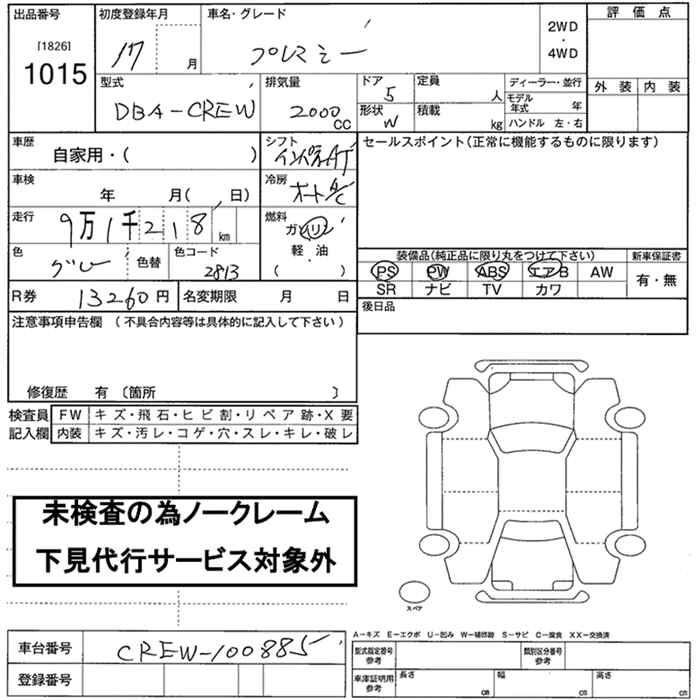 出品番号 初度登録年月 車名・グレード 評価点
[1826]
1015
17 月 プレミシー 2WD・4WD
外装 内装
型式 排気量 ドア 定員 ディーラー・並行
DBA-CREW 2000CC 5 人 モデル年式 年
形状 W 積載 kg ハンドル 左・右
車歴 シフト セールスポイント(正常に機能するものに限ります)
自家用・( ) インパネAT
車検 冷房
年 月( 、日) オートA/C
走行 燃料
9万1千218km ガソリン
軽・油
・
( )
色 色替 色コード
グレー 2813
装備品(純正品に限り丸をつけて下さい) 新車保証書
PS PW ABS エアB AW 有・無
SR ナビ TV カワ
R券 13260円 名変期限 月 日 後日品
注意事項申告欄 (不具合内容等は具体的に記入して下さい)
修復歴 有〔箇所 〕
検査員 FW キズ・飛石・ヒビ割・リペア跡・X要
記入欄 内装 キズ・汚レ・コゲ・穴・スレ・キレ・破レ
未検査の為ノークレーム
下見代行サービス対象外
スペア
A−キズ E−エクボ U−凹み W−補修跡 S−サビ C−腐食 XX−交換済
車台番号 CREW-100885
型式指定番号 参考 類別区分番号 参考
登録番号
車庫証明用 参考 長さ cm 幅 cm 高さ cm